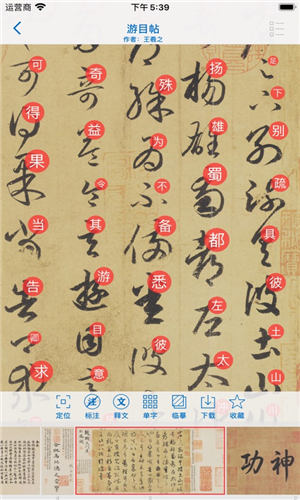 运营商 下午5:39
游目帖
作者：王羲之
足下别疏具彼土山
扬雄蜀都左太
殊为不备悉彼
奇益令其游目意
可得果当告卿求
定位 标注 释文 单字 临摹 下载 收藏
神功